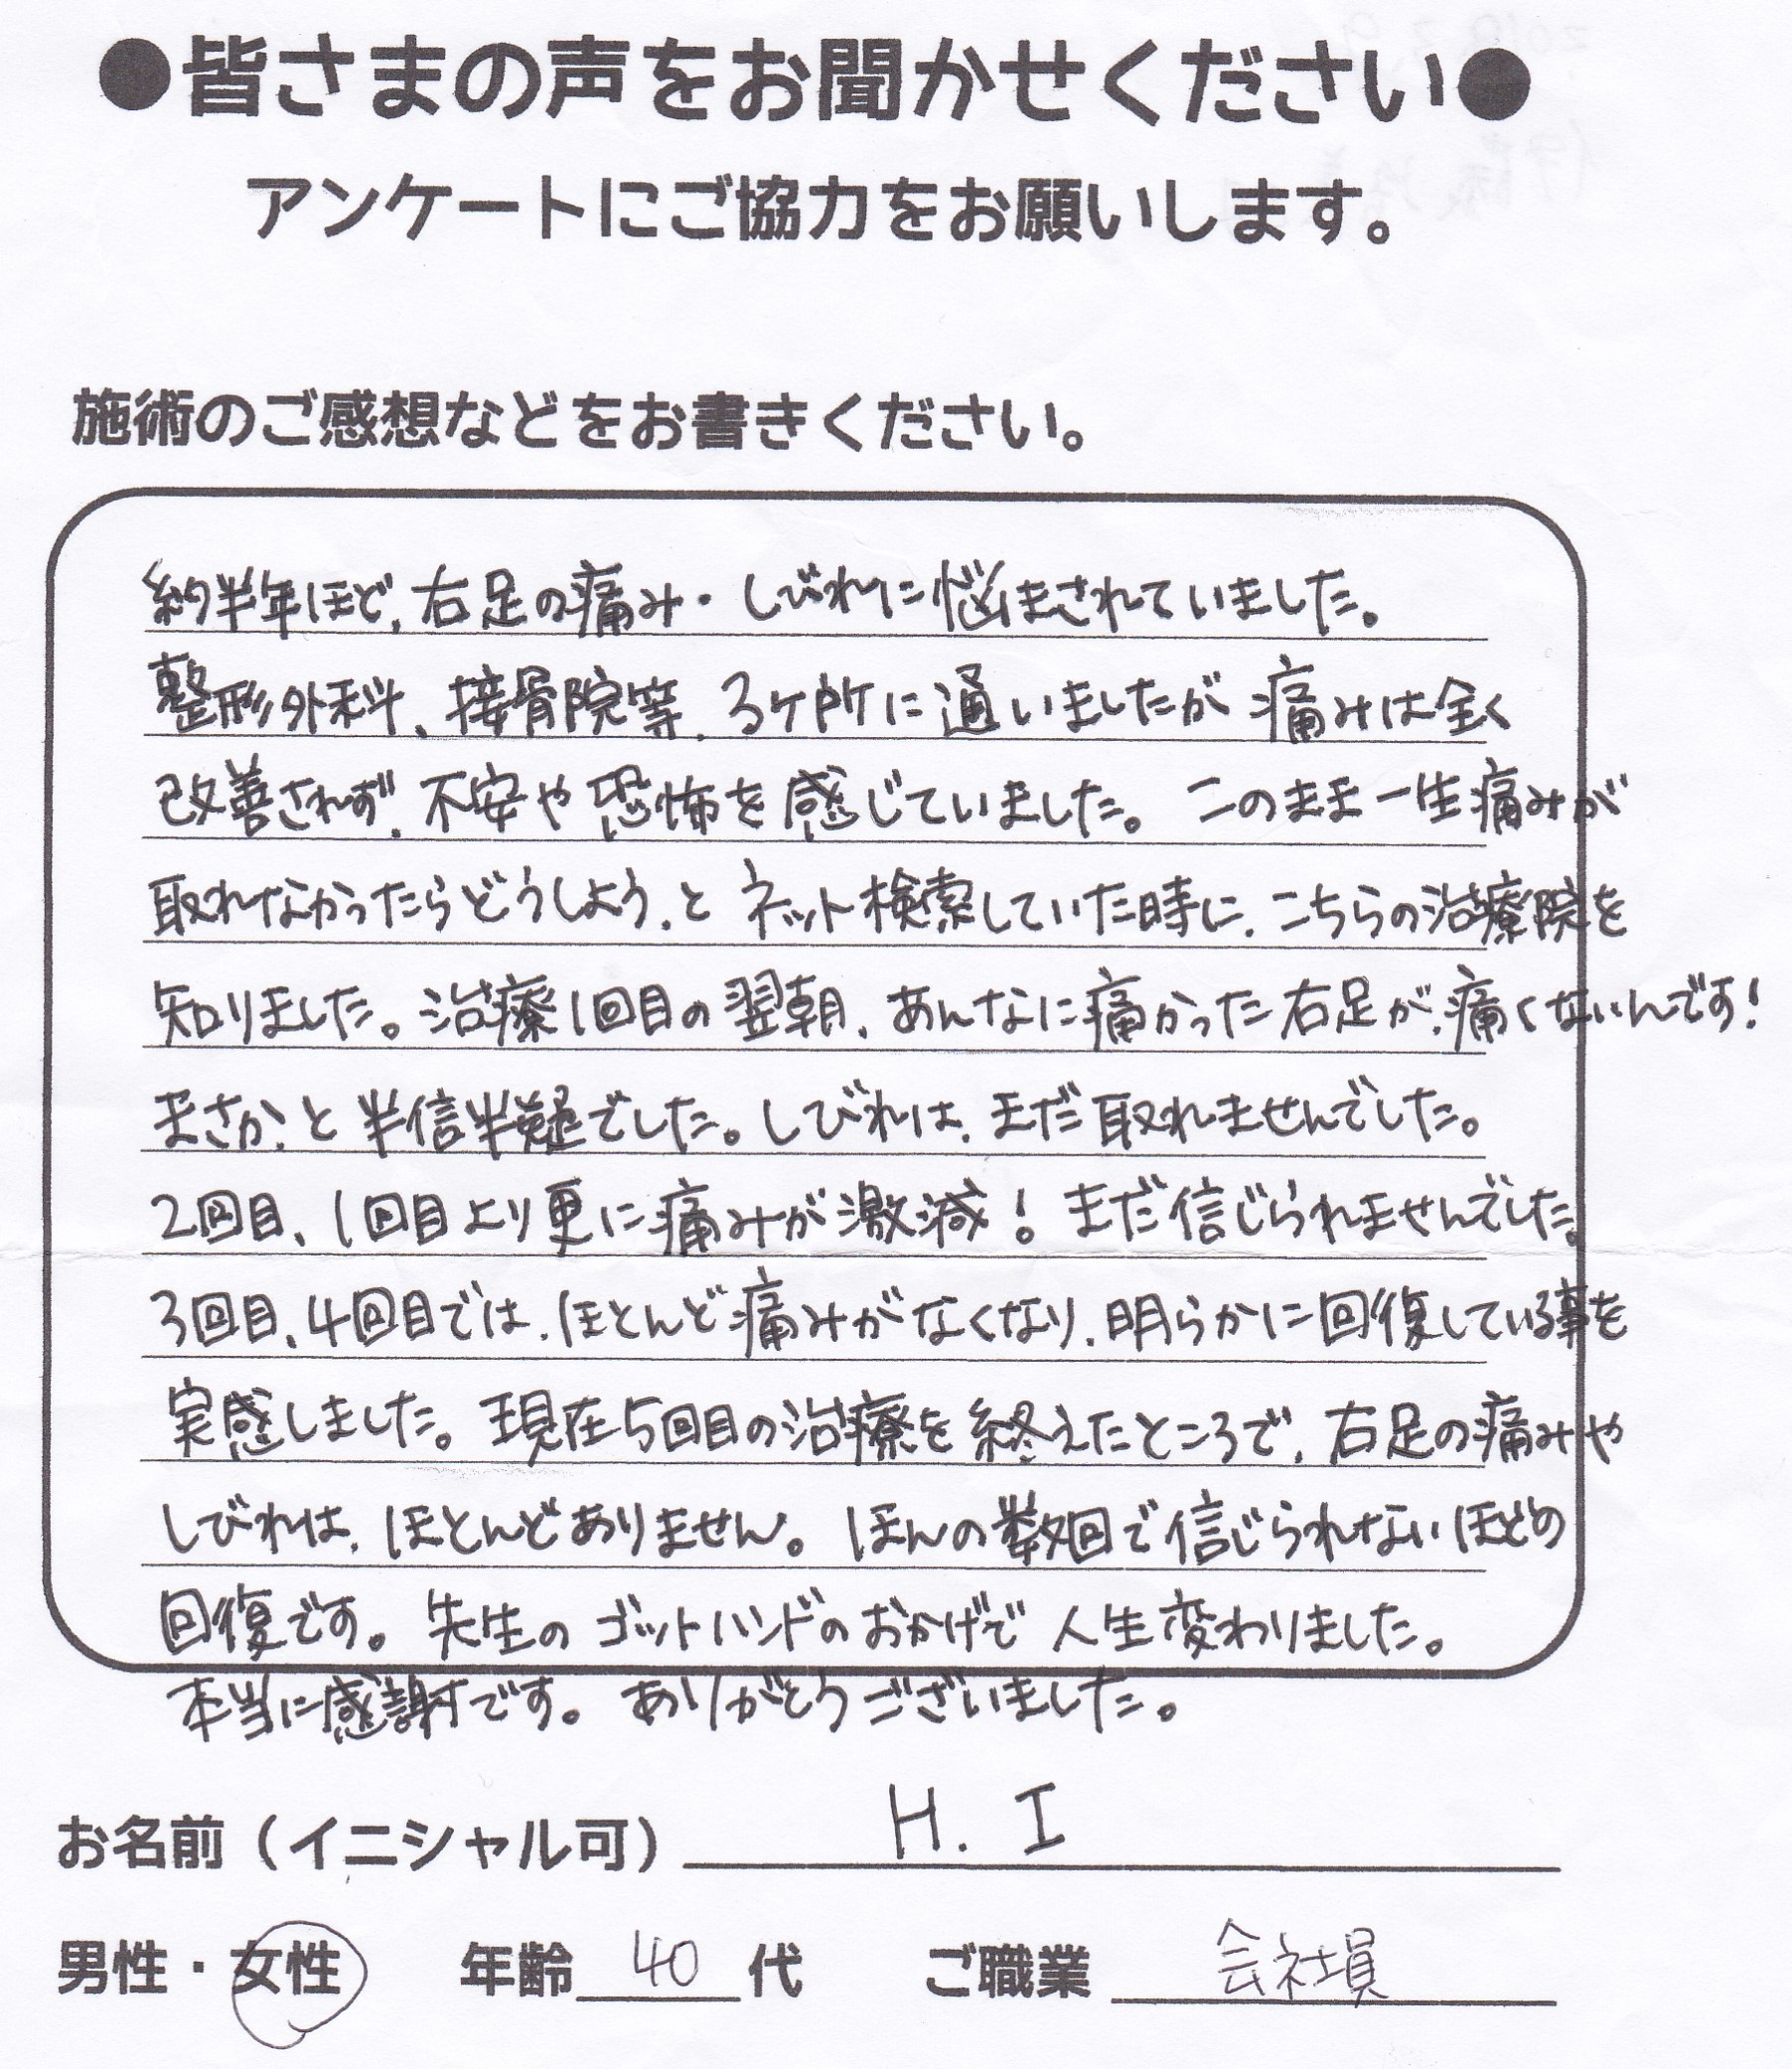 ●皆さまの声をお聞かせください●
アンケートにご協力をお願いします。
施術のご感想などをお書きください。
約半年ほど、右足の痛み・しびれに悩まされていました。
整形外科、接骨院等、3ヶ所に通いましたが痛みは全く
改善されず、不安や恐怖を感じていました。このまま一生痛みが
取れなかったらどうしよう、とネット検索していた時に、こちらの治療院を
知りました。治療1回目の翌朝、あんなに痛かった右足が、痛くないんです!
まさか、と半信半疑でした。しびれは、まだ取れませんでした。
2回目、1回目より更に痛みが激減!まだ信じられませんでした。
3回目、4回目では、ほとんど痛みがなくなり、明らかに回復している事を
実感しました。現在5回目の治療を終えたところで、右足の痛みや
しびれは、ほとんどありません。ほんの数回で信じられないほどの
回復です。先生のゴットハンドのおかげで人生変わりました。
本当に感謝です。ありがとうございました。
お名前(イニシャル可) H. I
男性・女性 年齢 40 代 ご職業 会社員